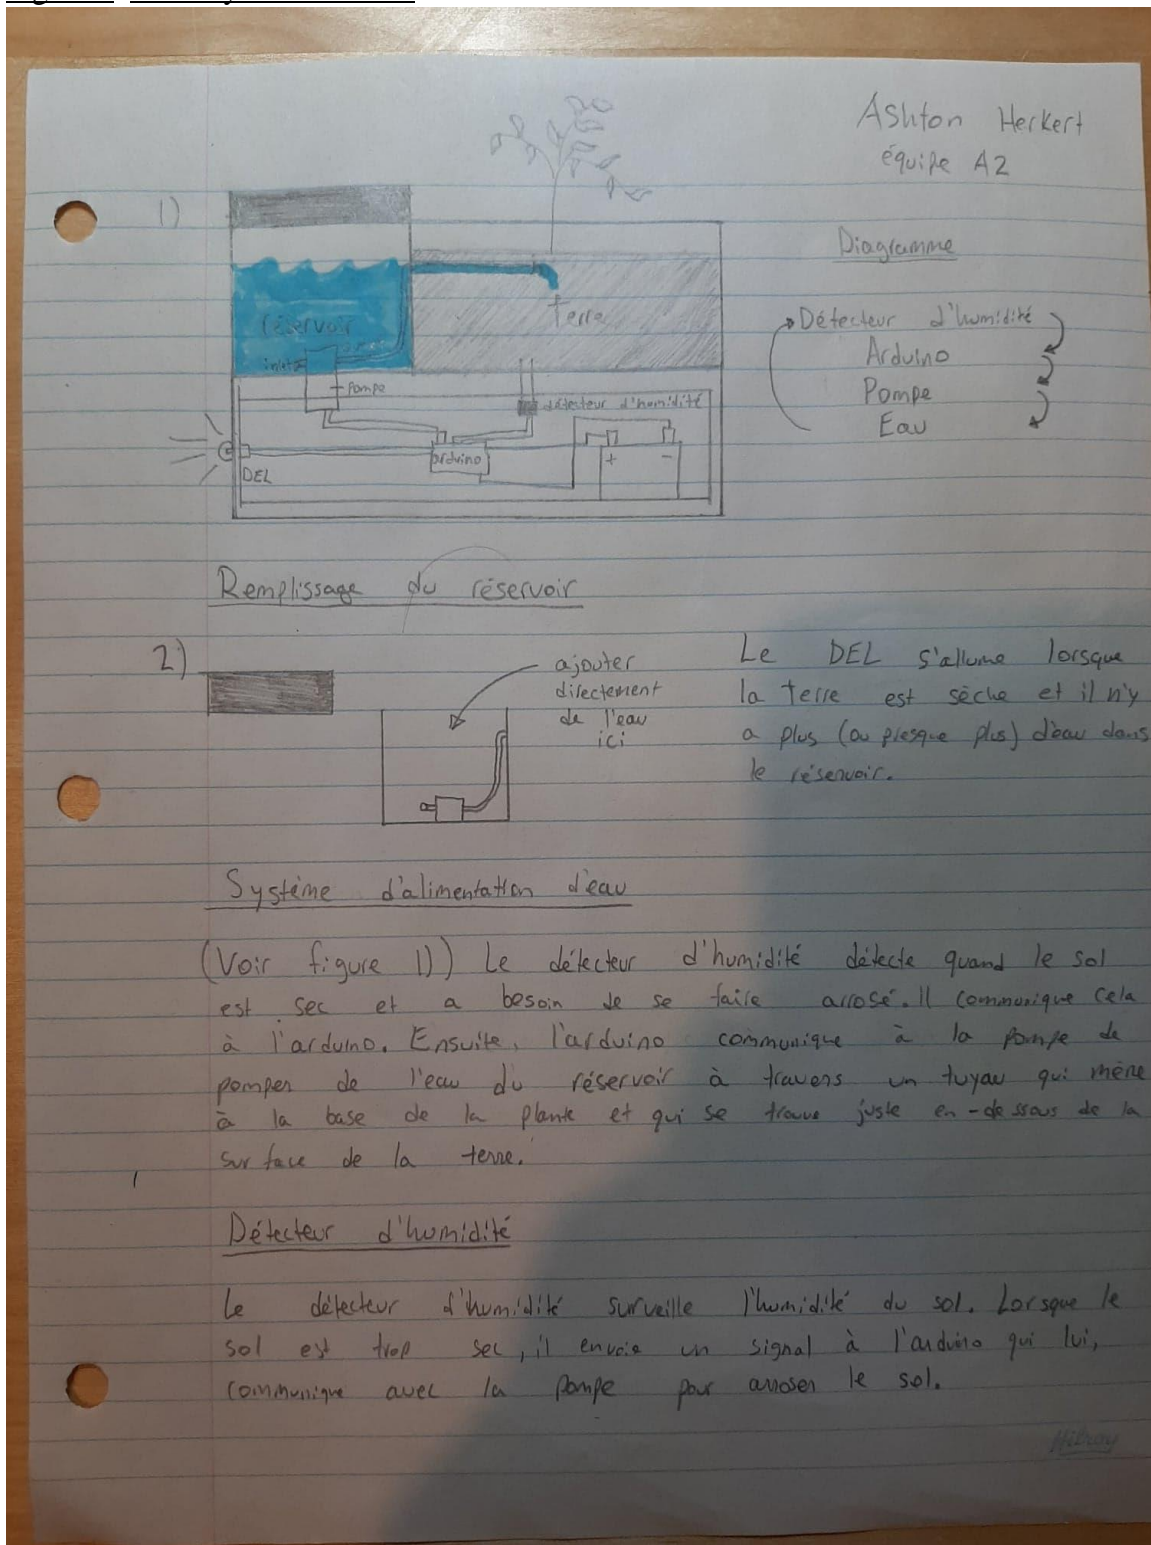 Ashton Herkert
équipe A2
1)
Diagramme
réservoir
terre
inlet
pompe
détecteur d'humidité
arduino
+ -
DEL
Détecteur d'humidité
Arduino
Pompe
Eau
Remplissage du réservoir
2)
ajouter
directement
de l'eau
ici
Le DEL s'allume lorsque
la terre est sèche et il n'y
a plus (ou presque plus) d'eau dans
le réservoir.
Système d'alimentation d'eau
(Voir figure 1)) Le détecteur d'humidité détecte quand le sol
est sec et a besoin de se faire arrosé. Il communique cela
à l'arduino. Ensuite, l'arduino communique à la pompe de
pomper de l'eau du réservoir à travers un tuyau qui mène
à la base de la plante et qui se trouve juste en-dessous de la
surface de la terre.
Détecteur d'humidité
Le détecteur d'humidité surveille l'humidité du sol. Lorsque le
sol est trop sec, il envoie un signal à l'arduino qui lui,
communique avec la pompe pour arroser le sol.
Hilroy